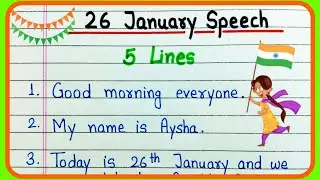 26 January Speech
5 Lines
1. Good morning everyone.
2. My name is Aysha.
3. Today is 26th January and we